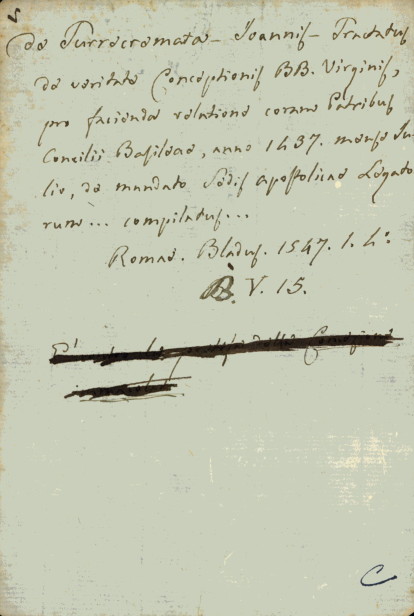 5
de Turrecremata - Ioannis - Tractatus
de veritate Conceptionis BB. Virginis,
pro facienda relatione coram Patribus
Concilii Basileae, anno 1437. mense Iu-
lio, de mandato Sedis Apostolicae Legato
rum... compilatus...
Romae. Bladus. 1547. 1. 4º.
B. V. 15.
C